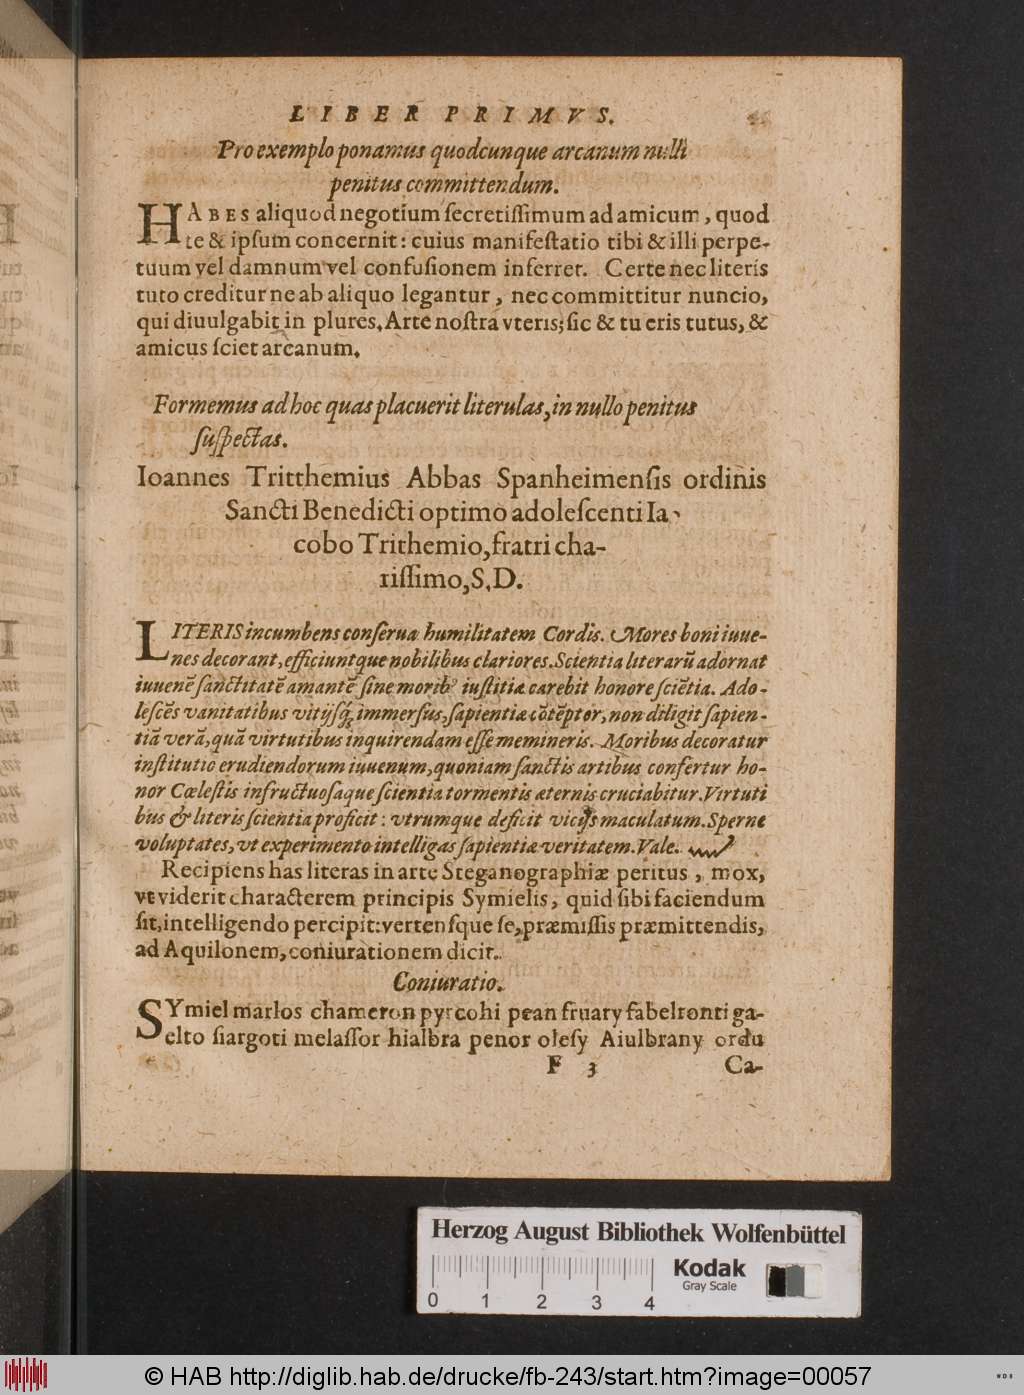 LIBER PRIMVS.
Pro exemplo ponamus quodcunque arcanum nulli
penitus committendum.
HABES aliquod negotium ſecretiſſimum ad amicum, quod
te & ipſum concernit: cuius manifeſtatio tibi & illi perpe-
tuum vel damnum vel confuſionem inferret. Certe nec literis
tuto creditur ne ab aliquo legantur, nec committitur nuncio,
qui diuulgabit in plures. Arte noſtra vteris; ſic & tu eris tutus, &
amicus ſciet arcanum.
Formemus ad hoc quas placuerit literulas, in nullo penitus
ſuſpectas.
Ioannes Tritthemius Abbas Spanheimenſis ordinis
Sancti Benedicti optimo adoleſcenti Ia-
cobo Trithemio, fratri cha-
riſſimo, S. D.
LITERIS incumbens conſerua humilitatem Cordis. Mores boni iuue-
nes decorant, efficiuntque nobilibus clariores. Scientia literarū adornat
iuuenē ſanctitatē amantē ſine morib⁹ iuſtitia carebit honore ſciētia. Ado-
leſcēs vanitatibus vitijſq́; immerſus, ſapientia cōtēptor, non diligit ſapien-
tiā verā, quā virtutibus inquirendam eſſe memineris. Moribus decoratur
inſtitutio erudiendorum iuuenum, quoniam ſanctis artibus confertur ho-
nor Cœleſtis infructuoſaque ſcientia tormentis æternis cruciabitur. Virtuti
bus & literis ſcientia proficit: vtrumque deficit vicijs maculatum. Sperne
voluptates, vt experimento intelligas ſapientiæ veritatem. Vale.
Recipiens has literas in arte Steganographiæ peritus, mox,
vt viderit characterem principis Symielis, quid ſibi faciendum
ſit, intelligendo percipit: vertenſque ſe, præmiſſis præmittendis,
ad Aquilonem, coniurationem dicit.
Coniuratio.
SYmiel marlos chameron pyrcohi pean fruary fabelronti ga-
elto ſiargoti melaſſor hialbra penor oleſy Aiulbrany ordu
F 3 Ca-
Herzog August Bibliothek Wolfenbüttel
0 1 2 3 4
Kodak
Gray Scale
© HAB http://diglib.hab.de/drucke/fb-243/start.htm?image=00057